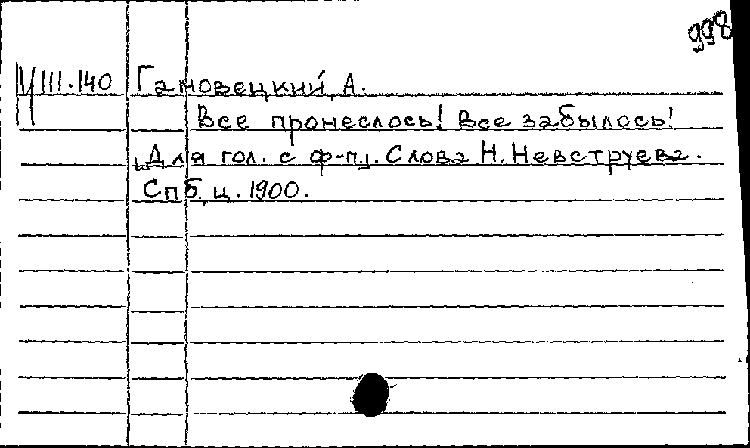 998
III.140 Гановецкий, А.
Все пронеслось! Все забылось!
Для гол. с ф-п. Слова Н. Невструева.
Спб, ц. 1900.